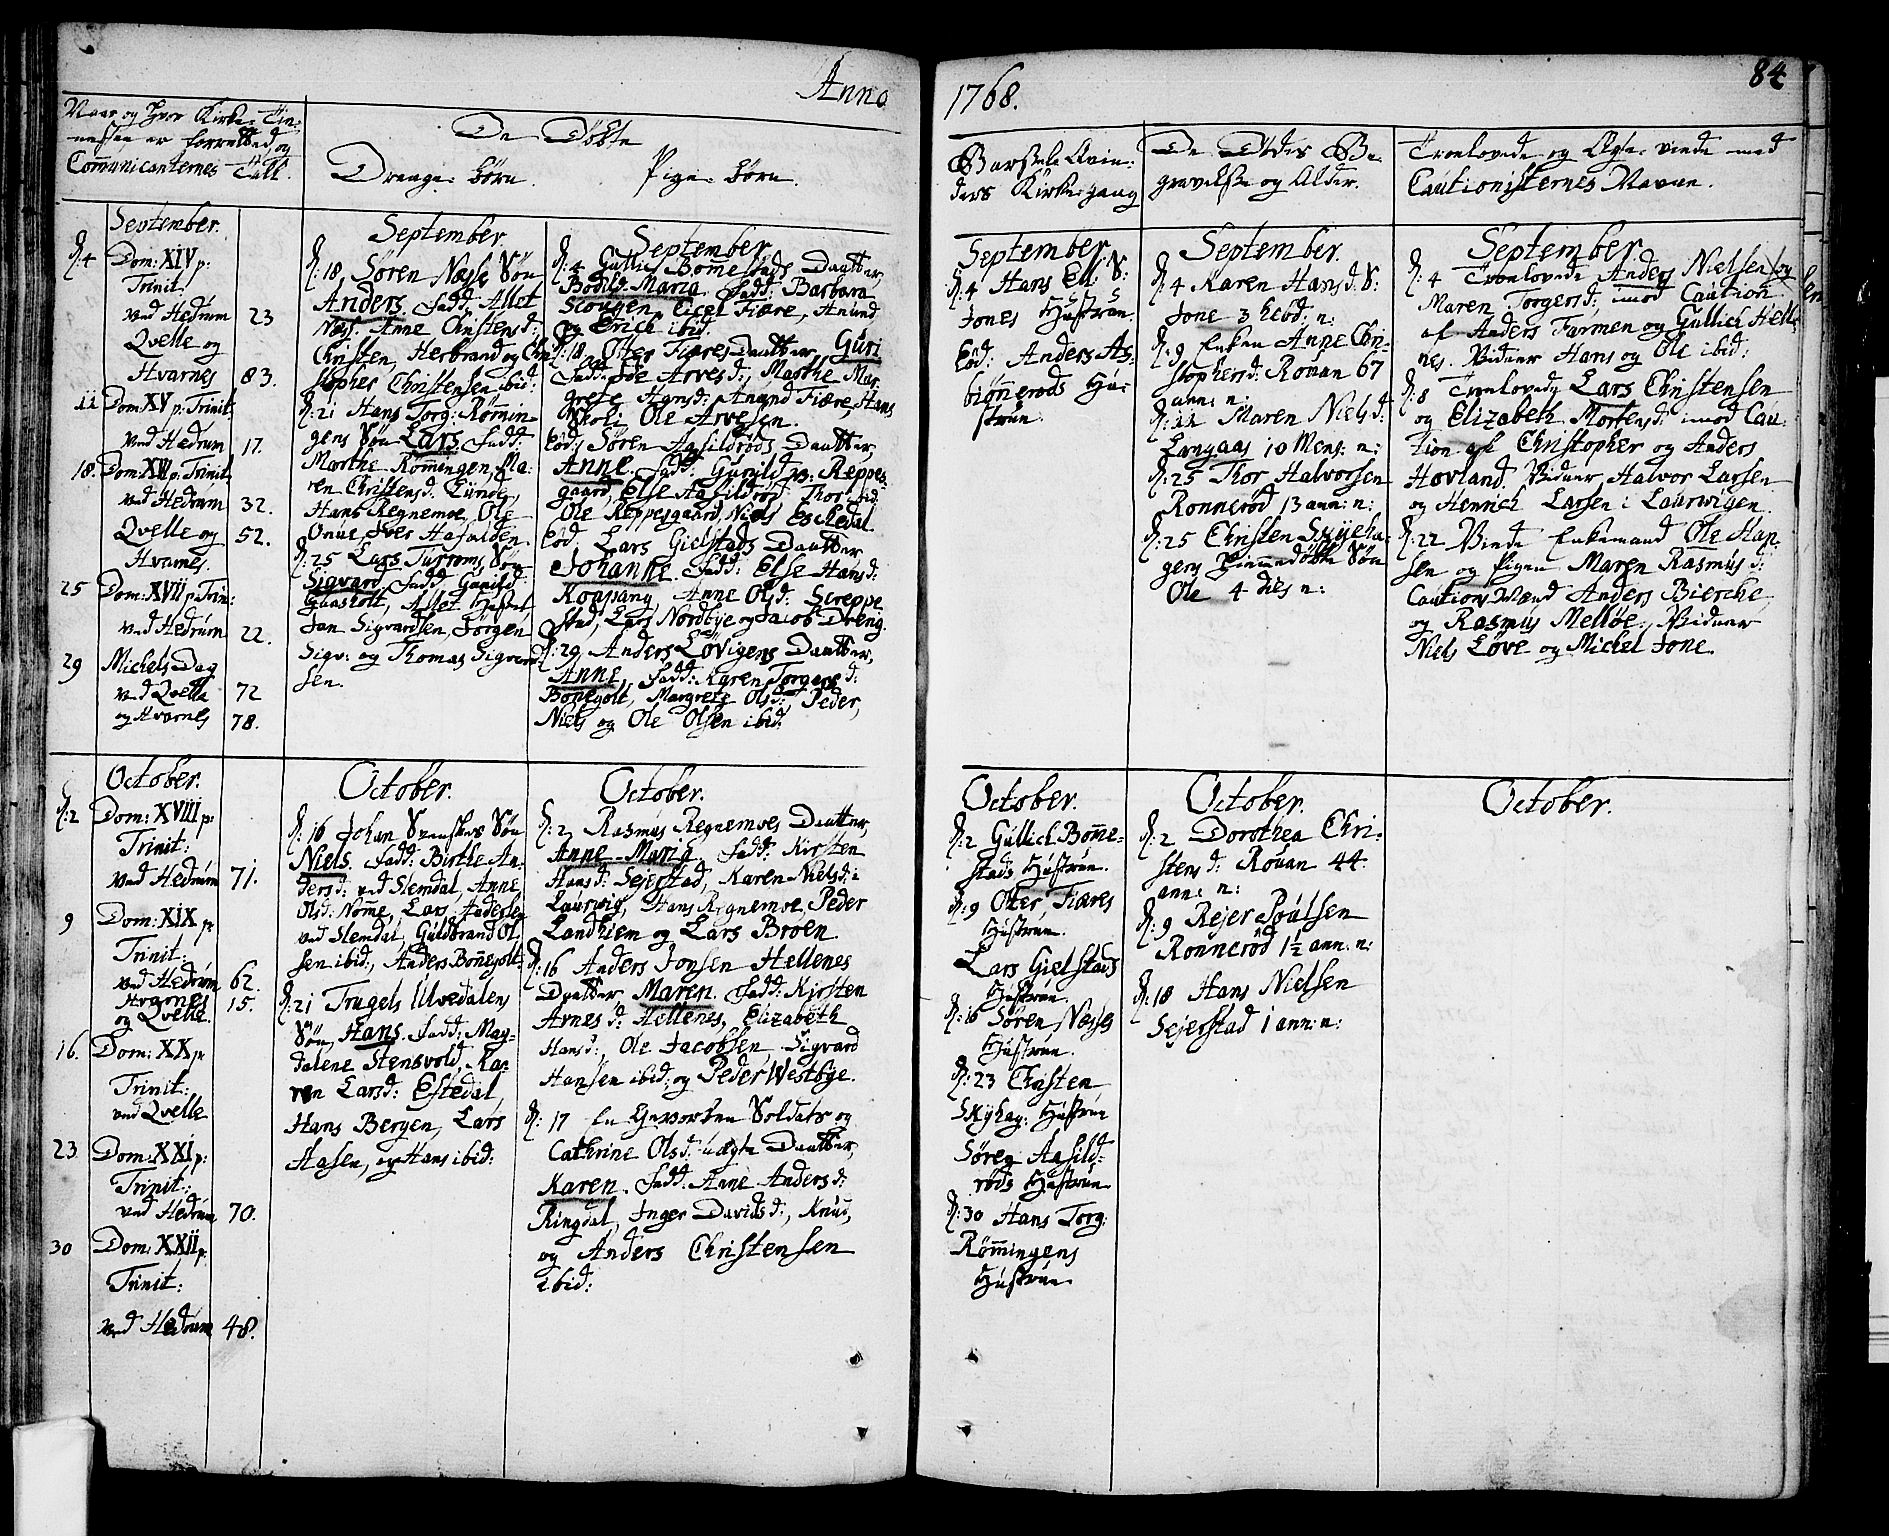 Anno
1768.
84
Naar og hvor Kirke-Tie-
nesten er forrettet, og
Communicanternes Tall.
De Döbte
Drenge-börn.
Pige-börn.
Barsele Qvin-
ders Kirkegang
De Dödes Be-
gravelse og Alder.
Troelovede og Ægte-viede med
Cautionisternes Navne.
September.
d: 4 Dom: XIV p:
Trinit.
ved Hedrum 23
Qvelle og
Hvarnes 83.
11 Dom: XV p: Trinit.
ved Hedrum 17.
18. Dom: XVI p: Trinit.
ved Hedrum 32.
Qvelle og 52.
Hvarnes.
25 Dom: XVII p: Trin:
ved Hedrum 22.
29 Michels Dag
ved Qvelle 72
og Hvarnes 78.
September.
d: 18. Sören Næss Sön
Anders. Fadd: Allet
Næs: Anne Christensd:
Christen Herbrand og Chri
stopher Christensen ibid:
d: 21 Hans Torg: Römin-
gens Sön Lars. Fadd:
Marthe Römingen, Ma-
ren Christensd:
Hans Regnemoe, Ole
Iver Hafalden.
d: 25 Lars Sön
Sigvard Fadd: Gunild
Allet
Jan Sigvardsen, Jörgen
Sigv: og Thomas Sigvard
sen.
September.
d: 4 Gullic Bomestads Daatter,
Bodild-Maria. Fadd: Barbara
Skougen, Fiære, Anund
og Erich ibid:
d: 18. Oter Fiæres Daatter, Guri
Fadd: Arvesd:, Marthe Mar-
grete Agnsd: Anund Fiære, Hans
Ole Arvesen.
Eod: Sören Aasildröds Daatter,
Anne. Fadd: Gunild Reppes-
gaard, Else Aasildröd, Thor ibid:
Ole Reppesgaard, Niels
Eod: Lars Gielstads Daatter
Johanne. Fadd: Else Hansd:
Anne Olsd: Sereppe-
stad, Lars Nordbye og Jacob
d: 29 Anders Lövigens Daatter,
Anne, Fadd: Karen Torgersd:
Bonegolt, Margrete Olsd: Peder,
Niels og Ole Olsen ibid:
September.
d: 4 Hans Ell: S:
Jones Hustrue.
Eod: Anders As-
biönneröds Hu-
strue.
September.
d: 4 Karen Hansd: S:
Jone 3 hebd: n:
d: 9 Enken Anne Chri-
stophersd: Rouan 67
ann: n:
d: 11 Maren Nielsd:
Langaas 10 Mens: n:
d: 25 Thor Halvorsen
Ronneröd 13 ann: n:
d: 25 Christen Skyeha-
gens hiemmedöbte Sön
Ole 4 dies n:
September.
d: 4 Troelovede Anders Nielsen og
Maren Torgersd: imod Caution
af Anders Farmen og Gullich Helle
nes. Vidner Hans og Ole ibid:
d: 8 Troelovede Lars Christensen
og Elizabeth Mortensd: imod Cau-
tion af Christopher og Anders
Hovland. Vidner Halvor Larsen
og Henrich Larsen i Laurwigen.
d: 22 Viede Enkemand Ole Hap-
sen og Pigen Maren Rasmusd:
Cautions Mænd Anders Bierche
og Rasmus Mellöe., Vidner
Niels Löve og Michel Jone.
October.
d: 2 Dom: XVIII p:
Trinit:
ved Hedrum 71.
9 Dom: XIX p:
Trinit:
ved Hedrum 62.
Hvarnes 15.
og Qvelle.
16. Dom: XX p:
Trinit:
ved Qvelle
23 Dom: XXI p:
Trinit:
ved Hedrum 70.
30 Dom: XXII p:
Trinit:
ved Hedrum 48.
October.
d: 16 Johan Svenskes Sön
Niels. Fadd: Birthe An-
dersd: ved Slemdal, Anne
Olsd: Nomme, Lars Andersen
ved Slemdal, Guldbrand Ol-
sen ibid:, Anders Bonegolt.
d: 21 Trugels Ulvedalens
Sön, Hans. Fadd: Mag-
dalene Stensvold, Ka-
ren Larsd: Estedal,
Hans Bergen, Lars
Aasen, og Hans ibid:
October.
d: 2 Rasmus Regnemoes Daatter,
Anne-Maria. Fadd: Kirsten
Hansd: Sejerstad, Karen Nielsd: i
Laurwig, Hans Regnemoe, Peder
Landhiem og Lars Broen.
d: 16 Anders Jonsen Hellenes
Daatter, Maren. Fadd: Kirsten
Arnesd: Hellenes, Elizabeth
Hansd:, Ole Jacobsen Sigvard
Hansen ibid: og Peder Westbye.
d: 17 En Gevorben Soldats og
Cathrine Olsd: uægte Daatter,
Karen. Fadd: Anne Andersd:
Ringdal, Inger Davidsd:, Knud,
og Anders Christensen
ibid:
October.
d: 2 Gullich Bomme-
stads Hustrue.
d: 9 Oter Fiæres
Hustrue.
Lars Gielstads
Hustrue.
d: 16 Sören Næsses
Hustrue.
d: 23 Christen
Skyhag: Hustrue
Sören Aasild-
röds Hustrue
d: 30 Hans Torg:
Römmingens
Hustrue.
October.
d: 2 Dorothea Chri-
stensd: Rouan 44
ann: n:
d: 9 Rejer Poulsen
Ronneröd 1½ ann: n:
d: 18 Hans Nielsen
Sejerstad 1 ann: n:
October.